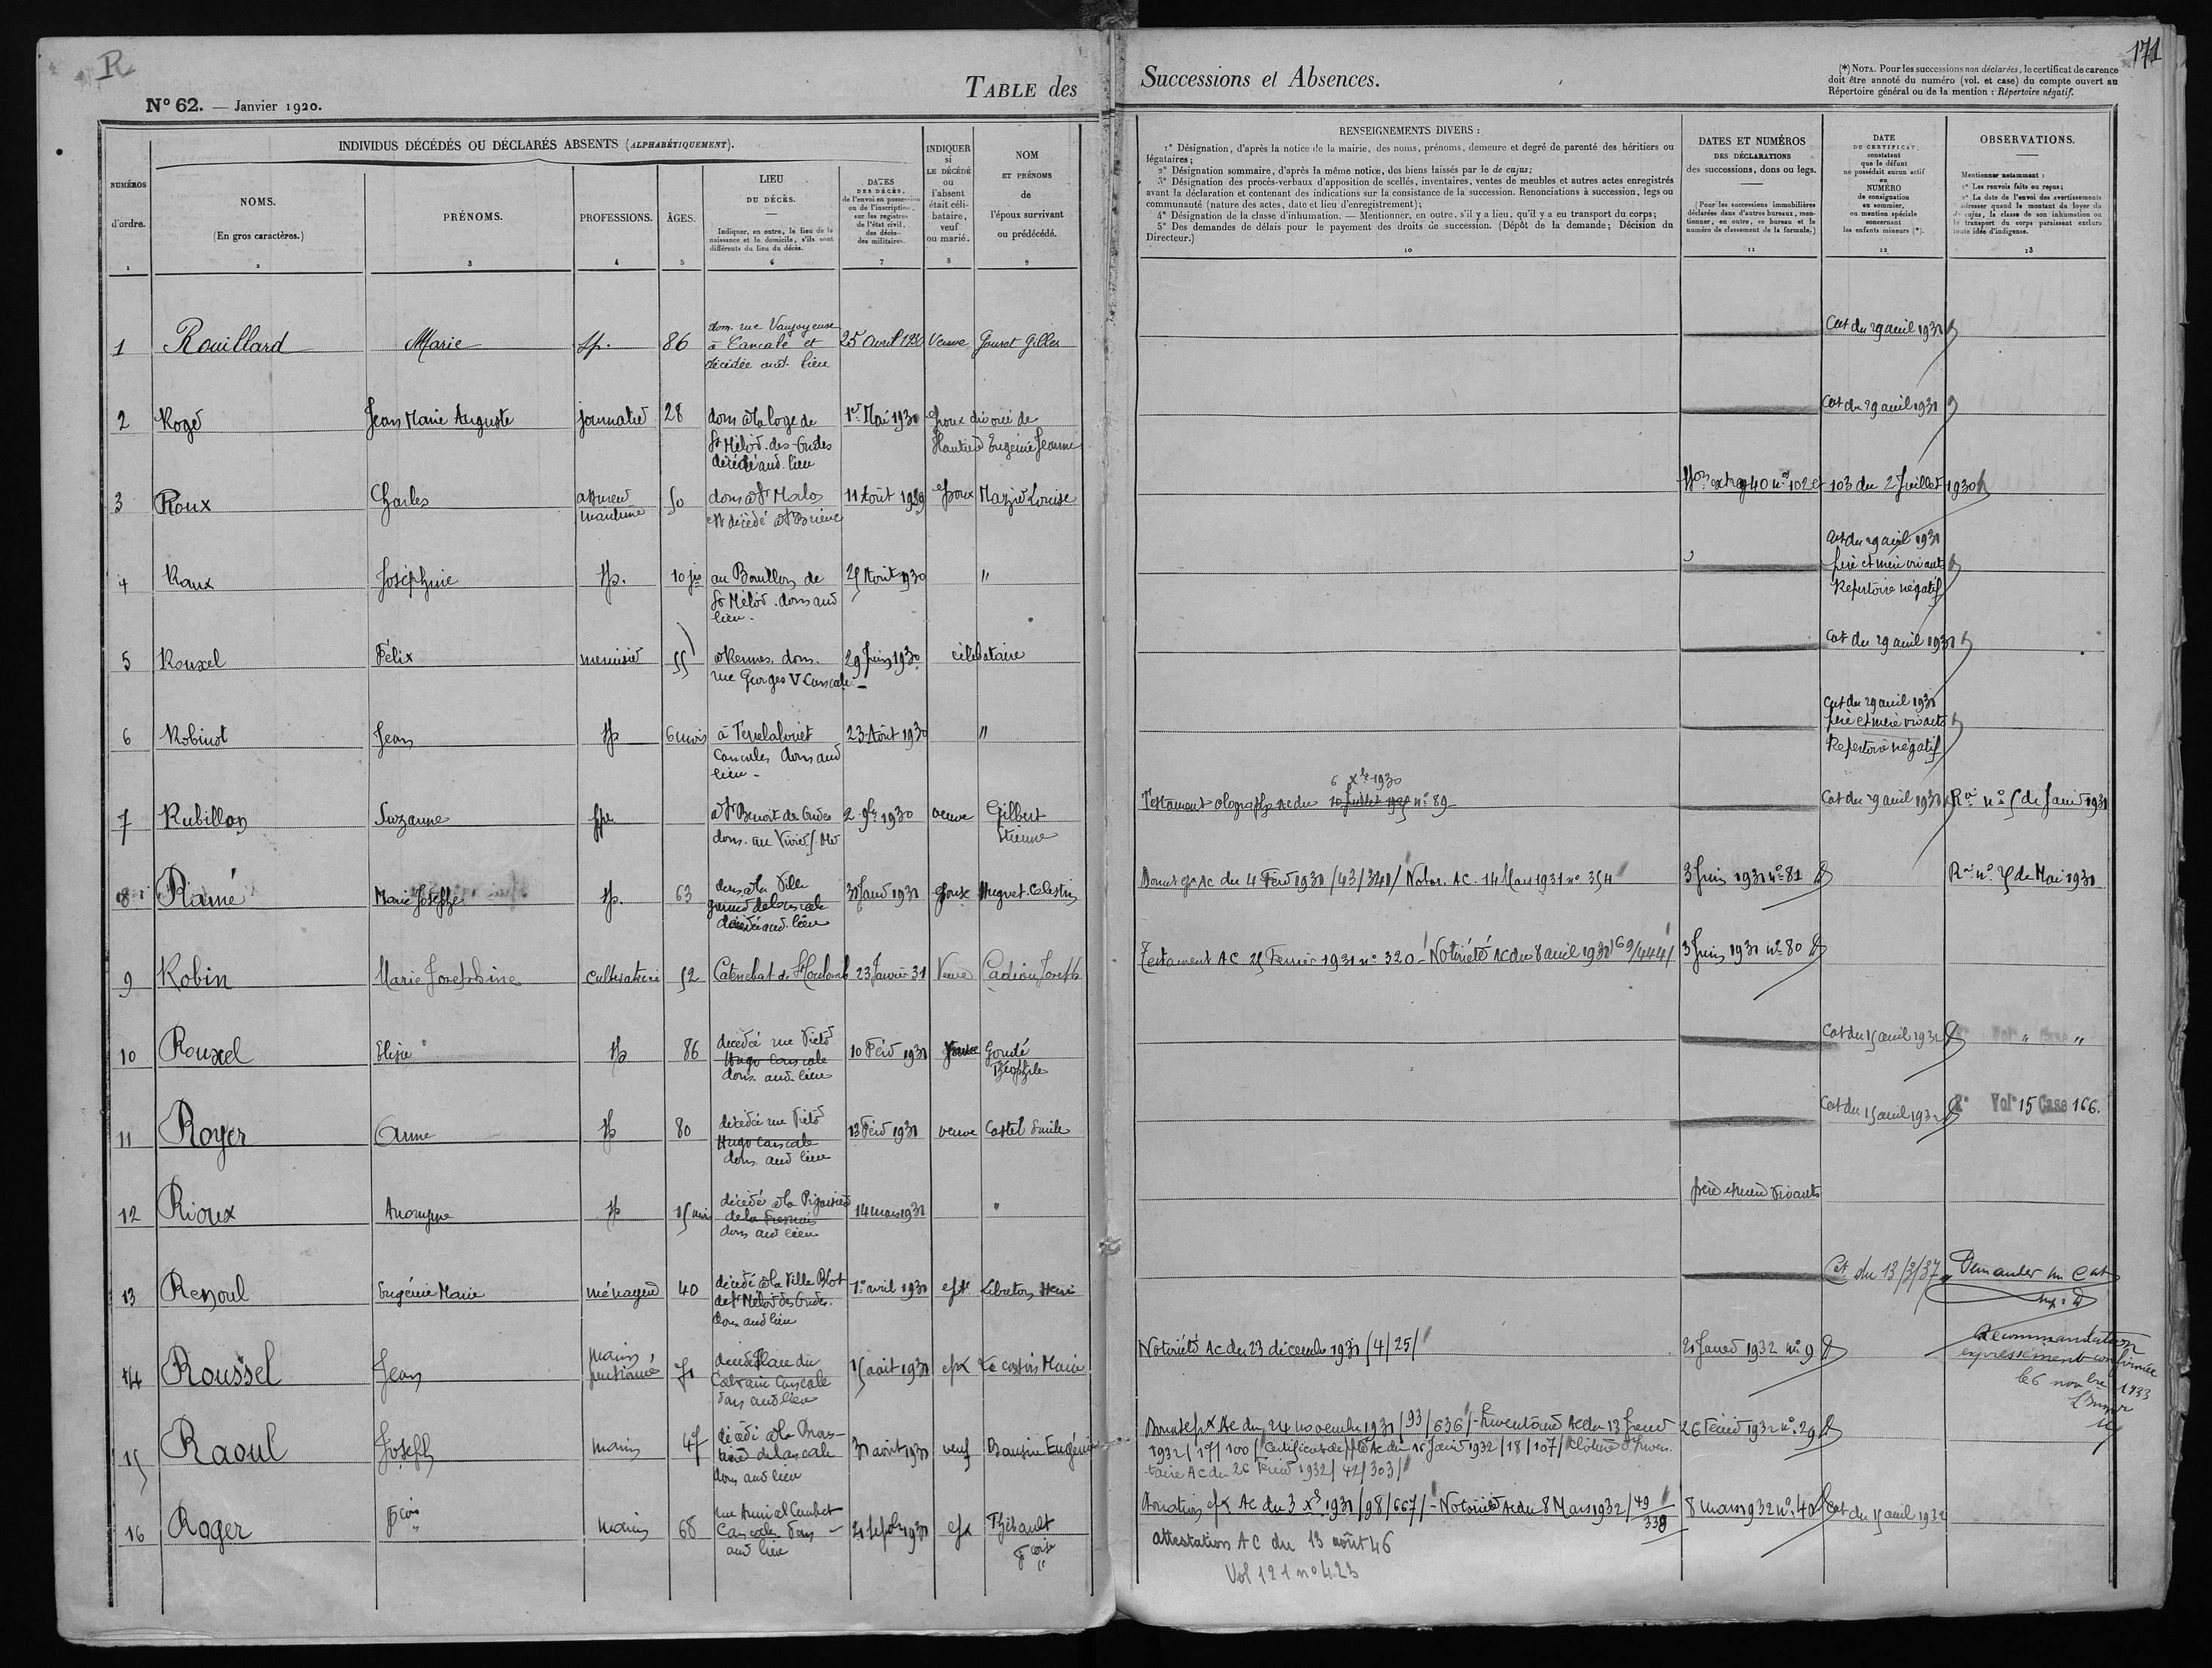 R
171
N° 62. — Janvier 1920.
TABLE des
Successions et Absences.
(*) NOTA. Pour les successions non déclarées, le certificat de carence
doit être annoté du numéro (vol. et case) du compte ouvert au
Répertoire général ou de la mention : Répertoire négatif.
NUMÉROS
d'ordre.
1
INDIVIDUS DÉCÉDÉS OU DÉCLARÉS ABSENTS (ALPHABÉTIQUEMENT).
NOMS.
(En gros caractères.)
2
PRÉNOMS.
3
PROFESSIONS.
4
ÂGES.
5
LIEU
DU DÉCÈS.
Indiquer, en outre, le lieu de la
naissance et le domicile, s'ils sont
différents du lieu du décès.
6
DATES
DES DÉCÈS,
de l'envoi en possession
ou de l'inscription,
sur les registres
de l'état civil,
des décès
des militaires.
7
INDIQUER
si
LE DÉCÉDÉ
ou
l'absent
était céli-
bataire,
veuf
ou marié.
8
NOM
ET PRÉNOMS
de
l'époux survivant
ou prédécédé.
9
RENSEIGNEMENTS DIVERS :
1° Désignation, d'après la notice de la mairie, des noms, prénoms, demeure et degré de parenté des héritiers ou
légataires;
2° Désignation sommaire, d'après la même notice, des biens laissés par le de cujus;
3° Désignation des procès-verbaux d'apposition de scellés, inventaires, ventes de meubles et autres actes enregistrés
avant la déclaration et contenant des indications sur la consistance de la succession. Renonciations à succession, legs ou
communauté (nature des actes, date et lieu d'enregistrement);
4° Désignation de la classe d'inhumation. — Mentionner, en outre, s'il y a lieu, qu'il y a eu transport du corps;
5° Des demandes de délais pour le payement des droits de succession. (Dépôt de la demande; Décision du
Directeur.)
10
DATES ET NUMÉROS
DES DÉCLARATIONS
des successions, dons ou legs.
(Pour les successions immobilières
déclarées dans d'autres bureaux, men-
tionner, en outre, ce bureau et le
numéro de classement de la formule.)
11
DATE
DU CERTIFICAT
constatant
que le défunt
ne possédait aucun actif
ou
NUMÉRO
de consignation
au sommier,
ou mention spéciale
concernant
les enfants mineurs (*).
12
OBSERVATIONS.
Mentionner notamment :
1° Les renvois faits ou reçus;
2° La date de l'envoi des avertissements
à adresser quand le montant du loyer du
de cujus, la classe de son inhumation ou
le transport du corps paraissent exclure
toute idée d'indigence.
13
1 Rouillard Marie sp. 86 dom. rue Vaujoyeuse
à Cancale et
décédée aud. lieu
25 Avril 1930 Veuve Gilles
Cert du 29 avril 1931
2 Rogé Jean Marie Auguste journalier 28 dom à la loge de
St Méloir des Ondes
décédé aud. lieu
1er Mai 1930 époux divorcé de
Eugénie Jeanne
Cert du 29 avril 1931
3 Roux Charles
maritime
50 dom à St Malo
et décédé à St Brieuc
11 Août 1929 époux Louise
40 nos 102 et 103 du 2 Juillet 1930
4 Raux Joséphine sp. 10 jrs au Bouillon de
St Méloir. dom aud
lieu.
Août 1930 "
Cert du 29 avril 1931
père et mère vivants
Répertoire négatif
5 Rouxel Félix menuisier 55 à Rennes. dom.
rue Georges V Cancale
29 Juin 1930 célibataire
Cert du 29 avril 1931
6 Robinot Jean sp 6 mois à
Cancale dom aud
lieu -
23 Août 1930 "
Cert du 29 avril 1931
père et mère vivants
Répertoire négatif
7 Rubillon Suzanne sp. à St Benoit des Ondes
dom. au Vivier s. Mer
2 9bre 1930 veuve Gilbert
Etienne
6 Xbre 1930
Testament olographe Ac du n° 89
Cert du 29 avril 1931 n° 5 de Janvier 1931
8 Ramé Marie Josèphe sp. 63 dom à la Ville
de Cancale
décédée aud. lieu
Janv 1931 épouse Huguet Célestin
AC du 4 Fevr 1931 /43/340/ Notor. AC. 14 Mars 1931 n° 354
3 Juin 1931 n° 81
de Mai 1931
9 Robin Marie Josephine cultivatrice 52 St Coulomb 23 Janvier 31 Veuve Cadiou Joseph
Testament AC 25 Fevrier 1931 n° 320 - Notoriété Ac du 8 avril 1931 69/444/
3 Juin 1931 n° 80
10 Rouxel Elisa sp 86 décédée rue Victor
Hugo Cancale
dom. aud. lieu
10 Févr 1931 Goudé
Théophile
Cert du 15 avril 1932 " "
11 Royer Anne sp 80 décédée rue Victor
Hugo Cancale
dom. aud lieu
13 Févr 1931 veuve Castel Emile
Cert du 15 avril 1932 R° Vol° 15 Case 166.
12 Rioux Anonyme sp décédé à la
de la Fresnais
dom aud lieu
14 mars 1931 "
père et mère vivants
13 Renoul Eugénie Marie ménagère 40 décédée à la Ville Blot
de St Méloir des Ondes.
dom aud lieu
1er avril 1931 Henri
Cert du 13/3/37 Demander un Cert
14 Roussel Jean marin,
pensionné
71
Calvaire Cancale
dom aud lieu
15 août 1931 epx Marie
Notoriété Ac du 23 décembre 1931 /4/25/
21 Janvr 1932 n° 9
Recommandation
expressément confirmée
le 6 novbre 1933
15 Raoul Joseph marin 47 décédé à la
de Cancale
dom aud lieu
août 1931 veuf Eugénie
Ac du 24 novembre 1931 /93/636/ - Inventaire Ac du 13 Janvr
1932 /17/100/ Certificat de ppté Ac du 16 Janvr 1932 /18/107/ Clôture d'Inven-
taire Ac du 26 Fevrier 1932 /42/303/
26 Février 1932 n° 29
16 Roger Fçois marin 68
Cancale dom -
aud lieu
septbre 1931 epx Thébault
Fçoise
Donation epx Ac du 3 Xbre 1931 /98/667/ - Notoriété Ac du 8 Mars 1932 /49/338
8 mars 1932 n° 40 Cert du 15 avril 1932
attestation AC du 13 août 46
Vol 121 n° 423